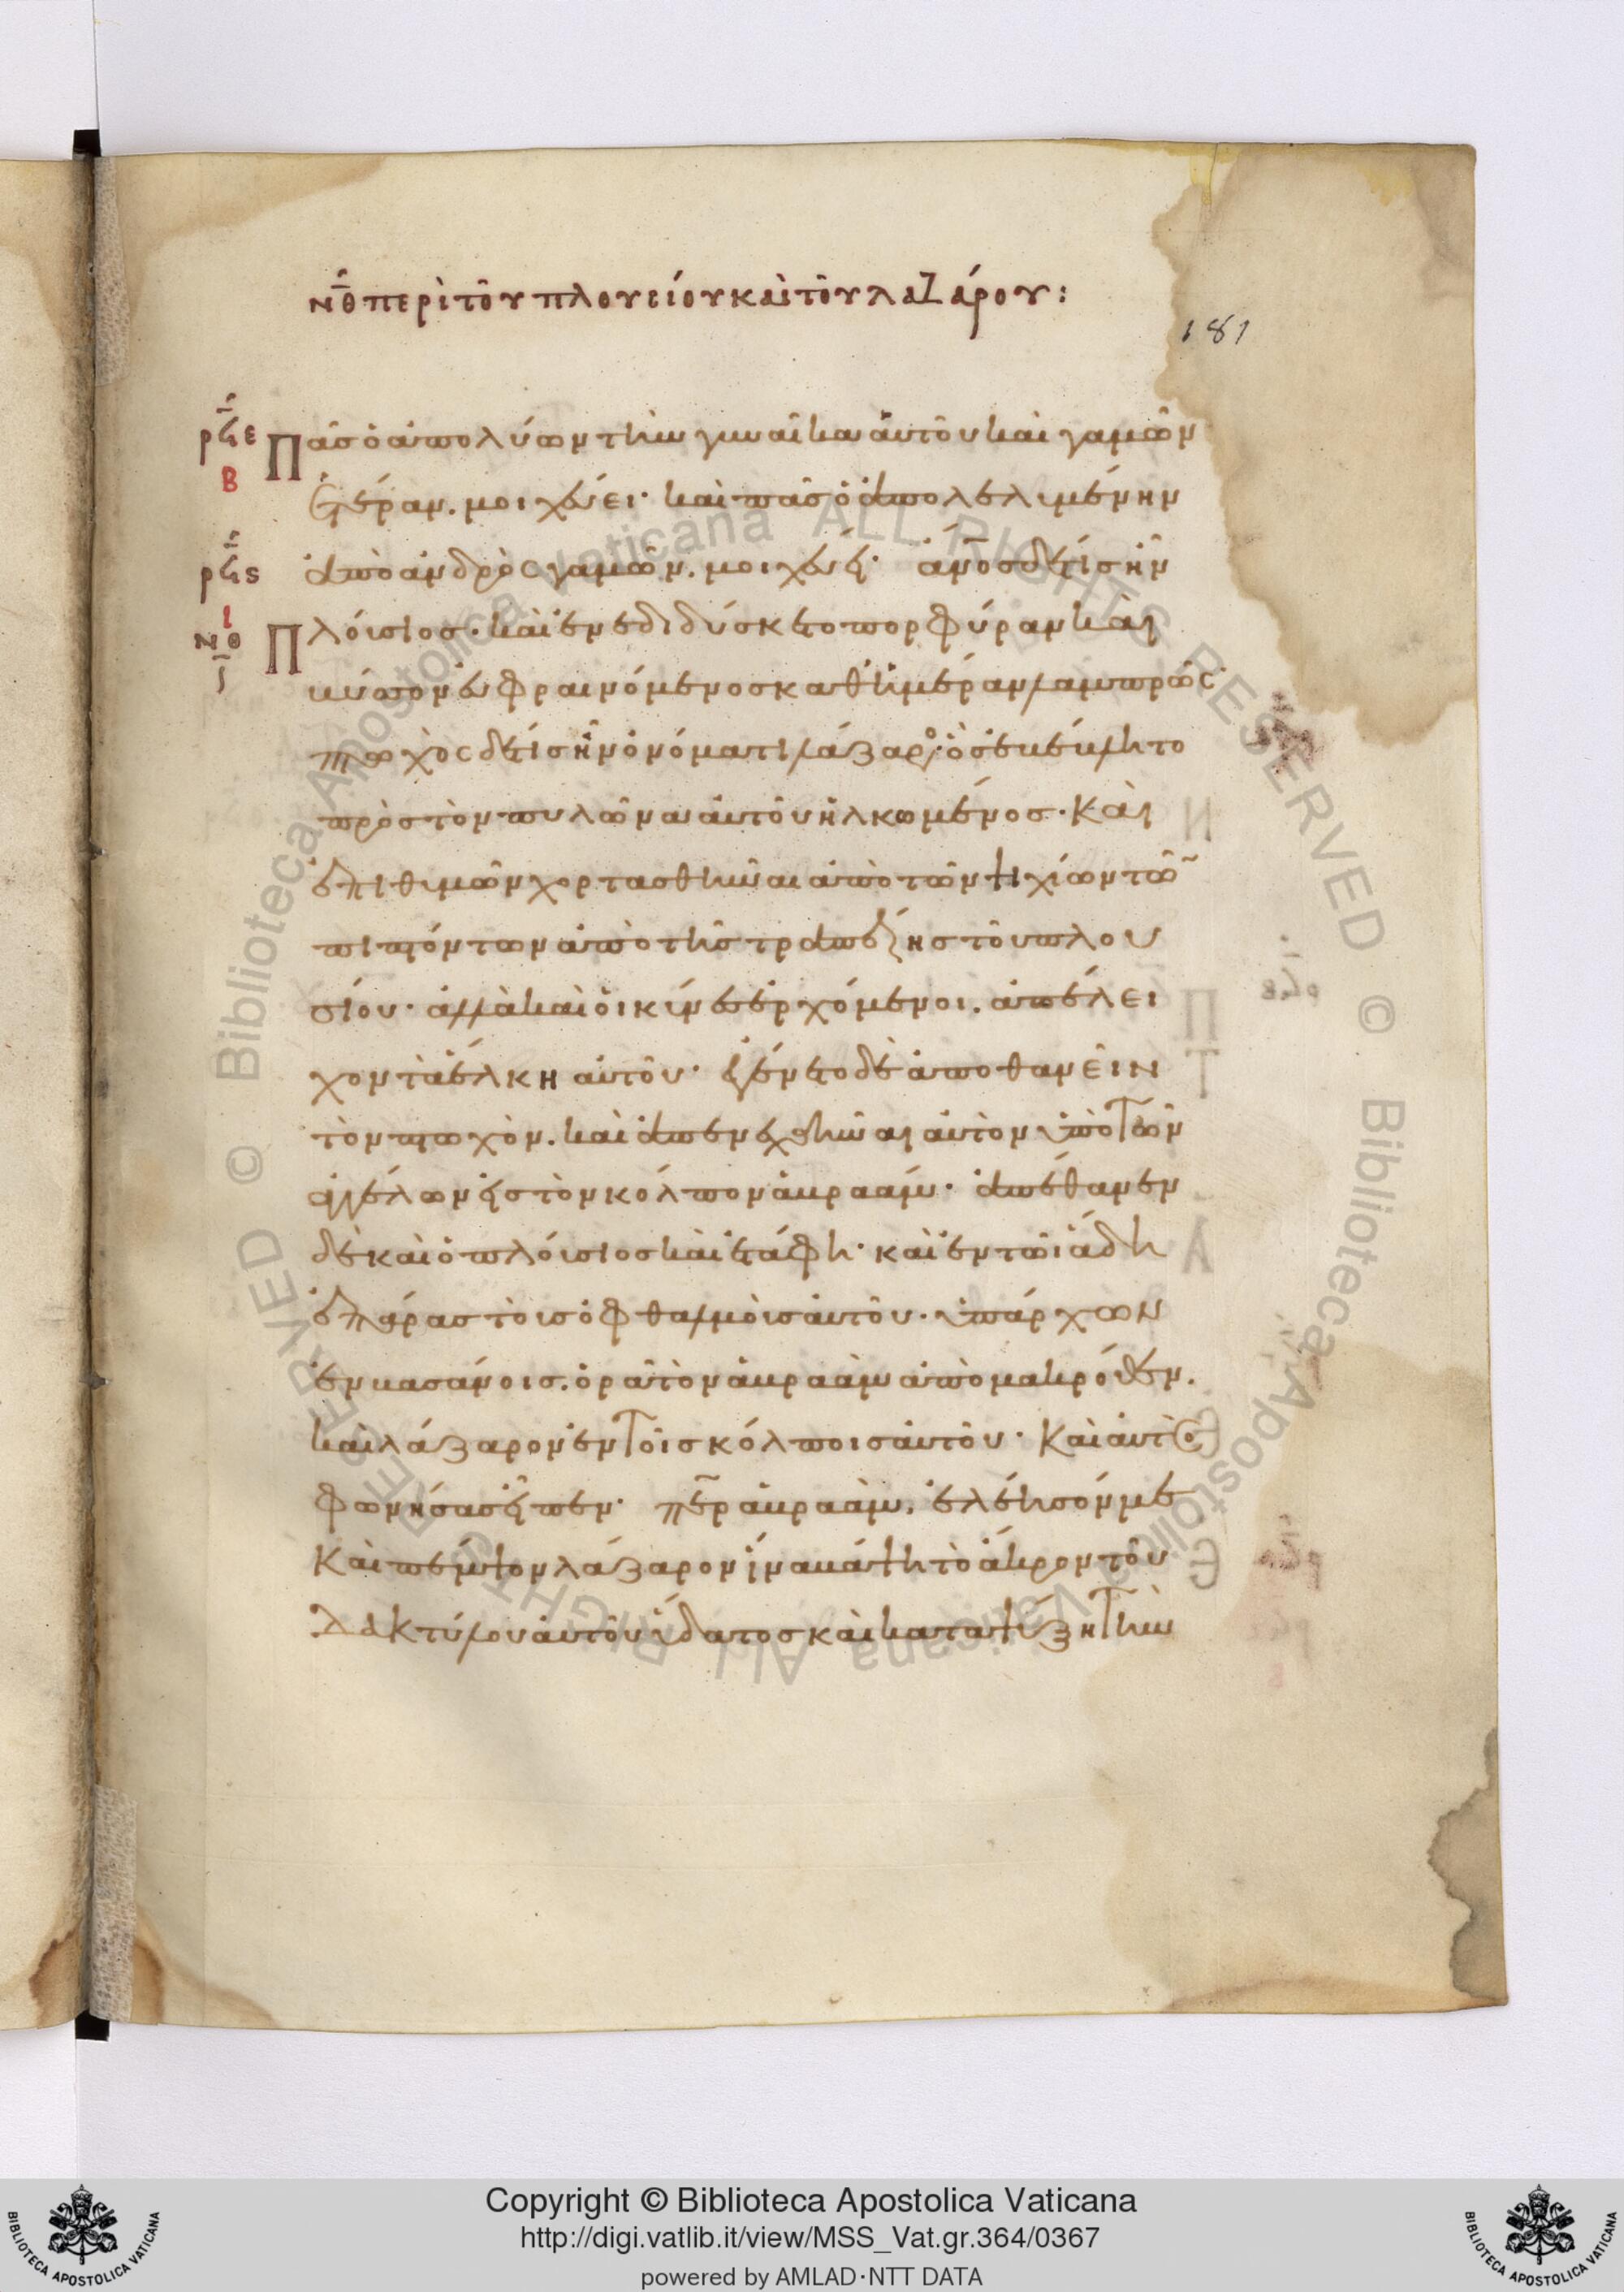 νθ περὶ τοῦ πλουσίου καὶ τοῦ λαζάρου:
181
ρϟε Πᾶσ ὁ ἀπολύων τὴν γυναῖκα ἀυτοῦ καὶ γαμῶν
β ἑτέραν. μοιχεύει· καὶ πᾶσ ὁ ἀπολελιμένην
ρϟς ἀπὸ ἀνδρὸς γαμῶν. μοιχεύει· ἀνος δέ τίσ ἦν
ι
νθ Πλόυσιοσ· καὶ ἐνεδιδύσκετο πορφύραν καὶ
κύσσον ἐυφραινόμενοσ καθημέραν λαμπρῶς·
πτωχὸς δέ τίσ ἦν ὀνόματι λάζαρος· ὃσ ἐβέβλητο
πρὸσ τὸν πυλῶνα ἀυτοῦ ἡλκωμένοσ· Καὶ
ἐπιθυμῶν χορτασθῆναι ἀπὸ τῶν ψιχίων τῶ
πιπτόντων ἀπὸ τῆσ τραπέζησ τοῦ πλου
σίου· ἀλλὰ καὶ ὁι κύνεσ ἐρχόμενοι. ἀπέλει
χον τὰ ἕλκη ἀυτοῦ· ἐγένετο δὲ ἀποθανεῖν
τὸν πτωχὸν. καὶ ἀπενεχθῆναι ἀυτὸν ὑπὸ τῶν
ἀγγέλων εἰσ τὸν κόλπον ἀβραάμ· ἀπέθανεν
δὲ καὶ ὁ πλόυσιοσ καὶ ἐτάφη· καὶ ἐν τῶι ἅδη
ἐπάρασ τὸισ ὀφθαλμὸισ ἀυτοῦ. ὑπάρχων
ἐν βασάνοισ. ὁρᾶ τὸν ἀβραὰμ ἀπὸ μακρόθεν.
καὶ λάζαρον ἐν τοῖσ κόλποισ ἀυτοῦ· Καὶ ἀυτὸς
φωνήσασ εἶπεν· περ ἀβραὰμ, ἐλέησόν με
Καὶ πέμψον λάζαρον ἵνα βάψη τὸ ἄκρον τοῦ
δακτύλου ἀυτοῦ ὕδατοσ καὶ καταψύξη τὴν
Copyright © Biblioteca Apostolica Vaticana
http://digi.vatlib.it/view/MSS_Vat.gr.364/0367
powered by AMLAD·NTT DATA
BIBLIOTECA APOSTOLICA VATICANA
BIBLIOTECA APOSTOLICA VATICANA
© Biblioteca Apostolica Vaticana ALL RIGHTS RESERVED © Biblioteca Apostolica Vaticana ALL RIGHTS RESERVED